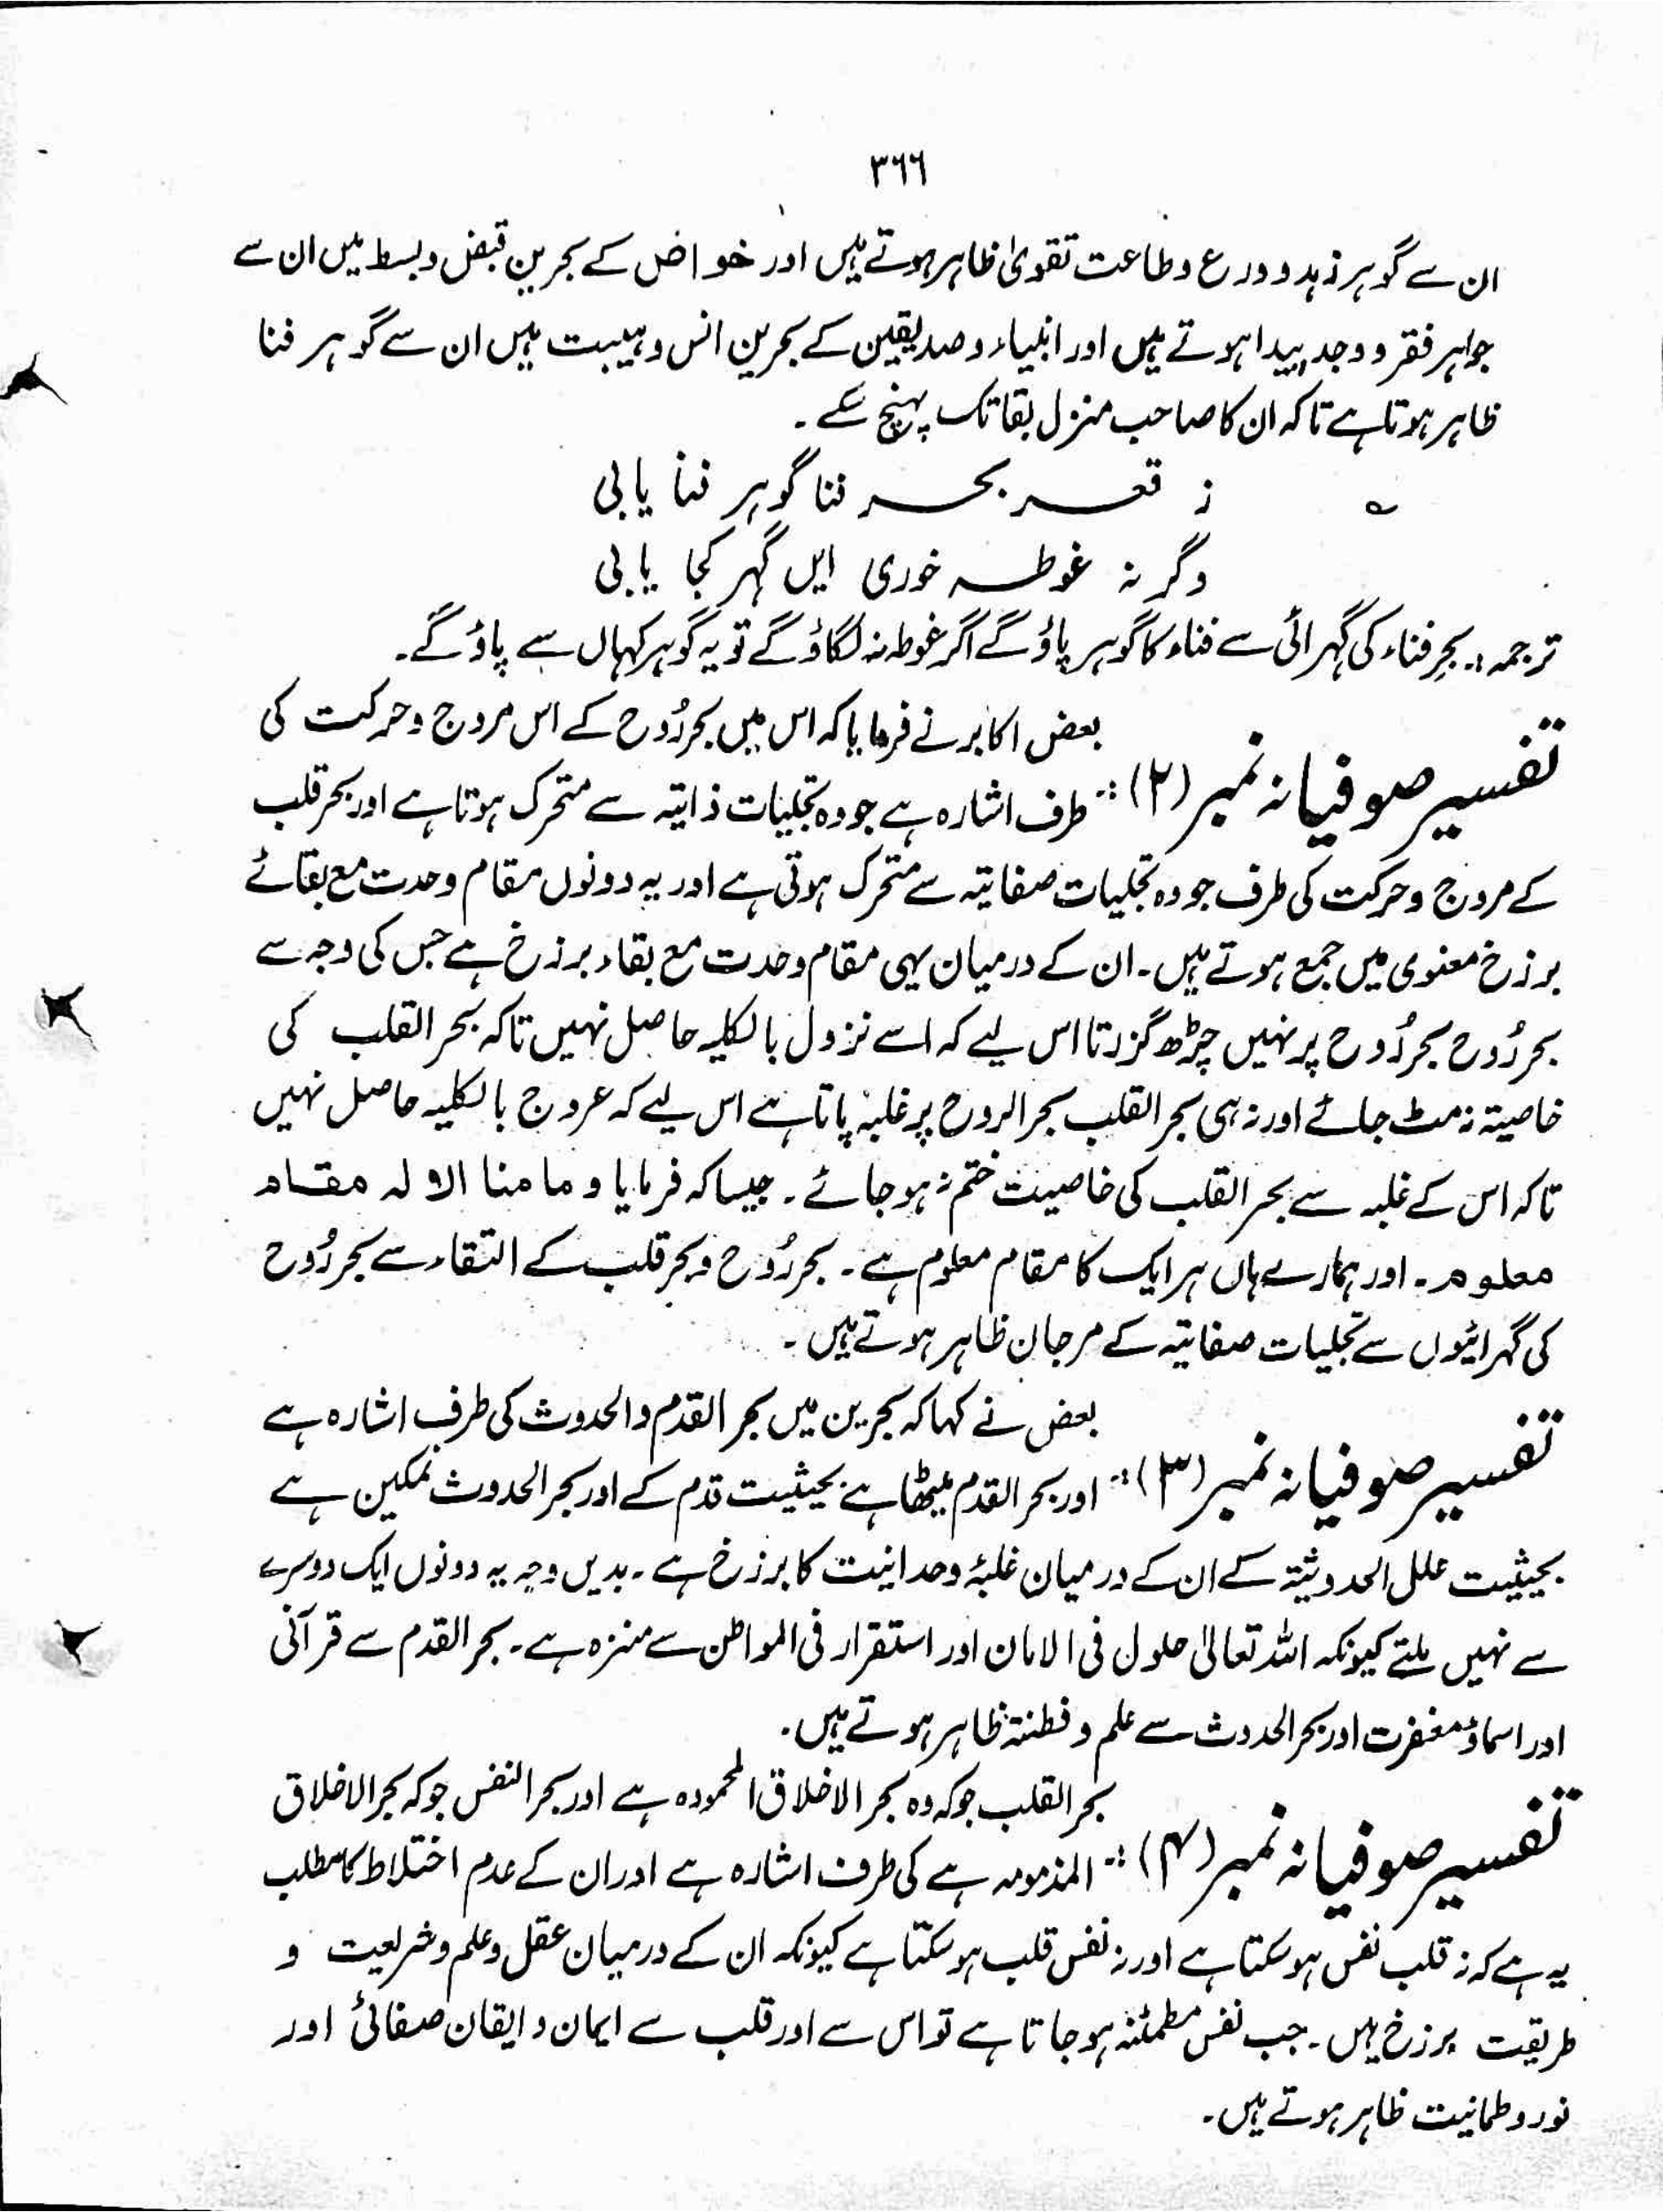 ۳۶۶
ان سے گوہر زہد و ورع و طاعت تقویٰ ظاہر ہوتے ہیں اور خواص کے بحرین قبض و بسط ہیں ان سے
جواہر فقر و وجد پیدا ہوتے ہیں اور انبیاء و صدیقین کے بحرین انس و ہیبت ہیں ان سے گوہر فنا
ظاہر ہوتا ہے تاکہ ان کا صاحب منزل بقا تک پہنچ سکے ۔
؎ ز قعر بحر فنا گوہر فنا یابی
وگر نہ غوطہ خوری ایں گہر کجا یابی
ترجمہ :۔ بحرِ فناء کی گہرائی سے فناء کا گوہر پاؤ گے اگر غوطہ نہ لگاؤ گے تو یہ گوہر کہاں سے پاؤ گے۔
بعض اکابر نے فرمایا کہ اس میں بحر رُوح کے اس مروج و حرکت کی
تفسیر صوفیانہ نمبر (۲) :۔ طرف اشارہ ہے جو وہ تجلیات ذاتیہ سے متحرک ہوتا ہے اور بحر قلب
کے مروج و حرکت کی طرف جو وہ تجلیات صفاتیہ سے متحرک ہوتی ہے اور یہ دونوں مقام وحدت مع بقائے
برزخ معنوی میں جمع ہوتے ہیں۔ ان کے درمیان یہی مقام وحدت مع بقاء برزخ ہے جس کی وجہ سے
بحر رُوح بحر رُوح پر نہیں چڑھ گزرتا اس لیے کہ اسے نزول بالکلیہ حاصل نہیں تاکہ بحر القلب کی
خاصیۃ نہ مٹ جائے اور نہ ہی بحر القلب بحر الروح پر غلبہ پاتا ہے اس لیے کہ عروج بالکلیہ حاصل نہیں
تاکہ اس کے غلبہ سے بحر القلب کی خاصیت ختم نہ ہو جائے ۔ جیسا کہ فرمایا و ما منا الا لہ مقام
معلوم ۔ اور ہمارے ہاں ہر ایک کا مقام معلوم ہے ۔ بحر رُوح و بحر قلب کے التقاء سے بحر رُوح
کی گہرائیوں سے تجلیات صفاتیہ کے مرجان ظاہر ہوتے ہیں ۔
بعض نے کہا کہ بحرین میں بحر القدم والحدوث کی طرف اشارہ ہے
تفسیر صوفیانہ نمبر (۳) :۔ اور بحر القدم میٹھا ہے بحیثیت قدم کے اور بحر الحدوث نمکین ہے
بحیثیت علل الحدوثیۃ کے ان کے درمیان غلبۂ وحدانیت کا برزخ ہے ۔ بدیں وجہ یہ دونوں ایک دوسرے
سے نہیں ملتے کیونکہ اللہ تعالیٰ حلول فی الامان اور استقرار فی المواطن سے منزہ ہے ۔ بحر القدم سے قرآنی
اور اسماؤ مغفرت اور بحر الحدوث سے علم و فطنۃ ظاہر ہوتے ہیں۔
بحر القلب جو کہ وہ بحر الاخلاق المحمودہ ہے اور بحر النفس جو کہ بحر الاخلاق
تفسیر صوفیانہ نمبر (۴) :۔ المذمومہ ہے کی طرف اشارہ ہے اور ان کے عدم اختلاط کا مطلب
یہ ہے کہ نہ قلب نفس ہو سکتا ہے اور نہ نفس قلب ہو سکتا ہے کیونکہ ان کے درمیان عقل و علم و شریعت و
طریقت برزخ ہیں۔ جب نفس مطمئنہ ہو جاتا ہے تو اس سے اور قلب سے ایمان و ایقان صفائی اور
نور و طمانیت ظاہر ہوتے ہیں۔